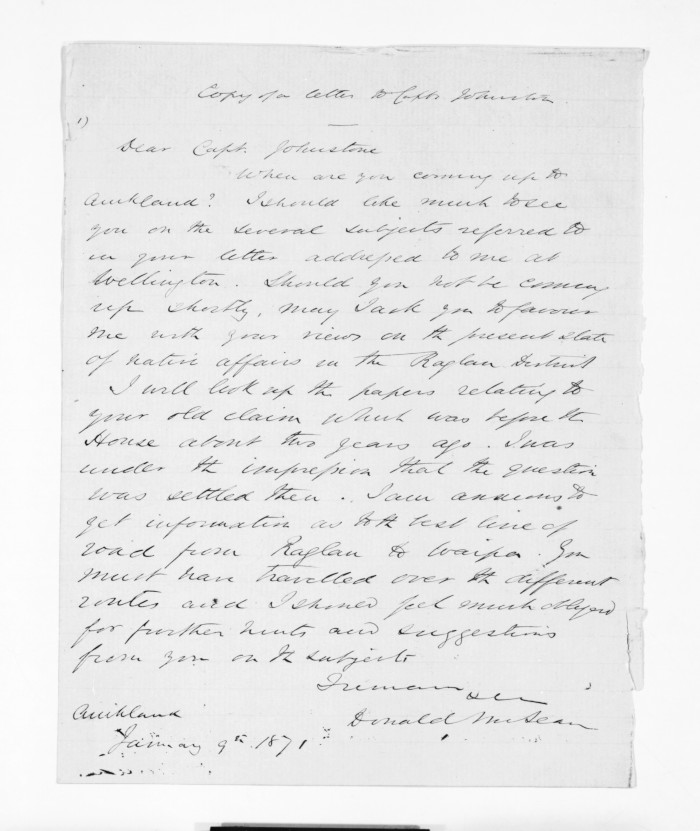 Copy of a letter to Capt. Johnston
1)
Dear Capt. Johnstone
When are you coming up to
Auckland? I should like much to see
you on the several subjects referred to
in your letter addressed to me at
Wellington. Should you not be coming
up shortly, may I ask you to favour
me with your views on th present state
of native affairs in the Raglan District
I will look up the papers relating to
your old claim which was before the
House about two years ago. I was
under th impression that the question
was settled then. I am anxious to
get information as to th best line of
road from Raglan to Waipa. You
must have travelled over th different
routes and I should feel much obliged
for further hints and suggestions
from you on th subject
I remain
Donald McLean
Auckland
January 9th 1871